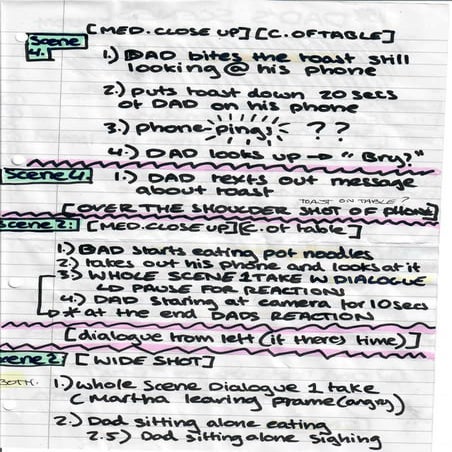 [MED. CLOSE UP] [C. OF TABLE]
Scene 4.
1.) DAD bites the toast still looking @ his phone
2.) puts toast down 20 secs of DAD on his phone
3.) phone pings ? ?
4.) DAD looks up → "Bry?"
Scene 4 1.) DAD texts out message about toast
TOAST ON TABLE?
[OVER THE SHOULDER SHOT OF PHONE]
Scene 2: [MED. CLOSE UP] [C. of table]
1.) DAD starts eating pot noodles
2.) takes out his phone and looks at it
3.) WHOLE SCENE 1 TAKE IN DIALOGUE
↳ PAUSE FOR REACTIONS
4.) DAD staring at camera for 10 secs
* at the end DADS REACTION
[dialogue from left (if theres time)]
scene 2: [WIDE SHOT]
BOTH.
1.) Whole Scene Dialogue 1 take
(Martha leaving frame (angry)
2.) Dad sitting alone eating
2.5) Dad sitting alone sighing